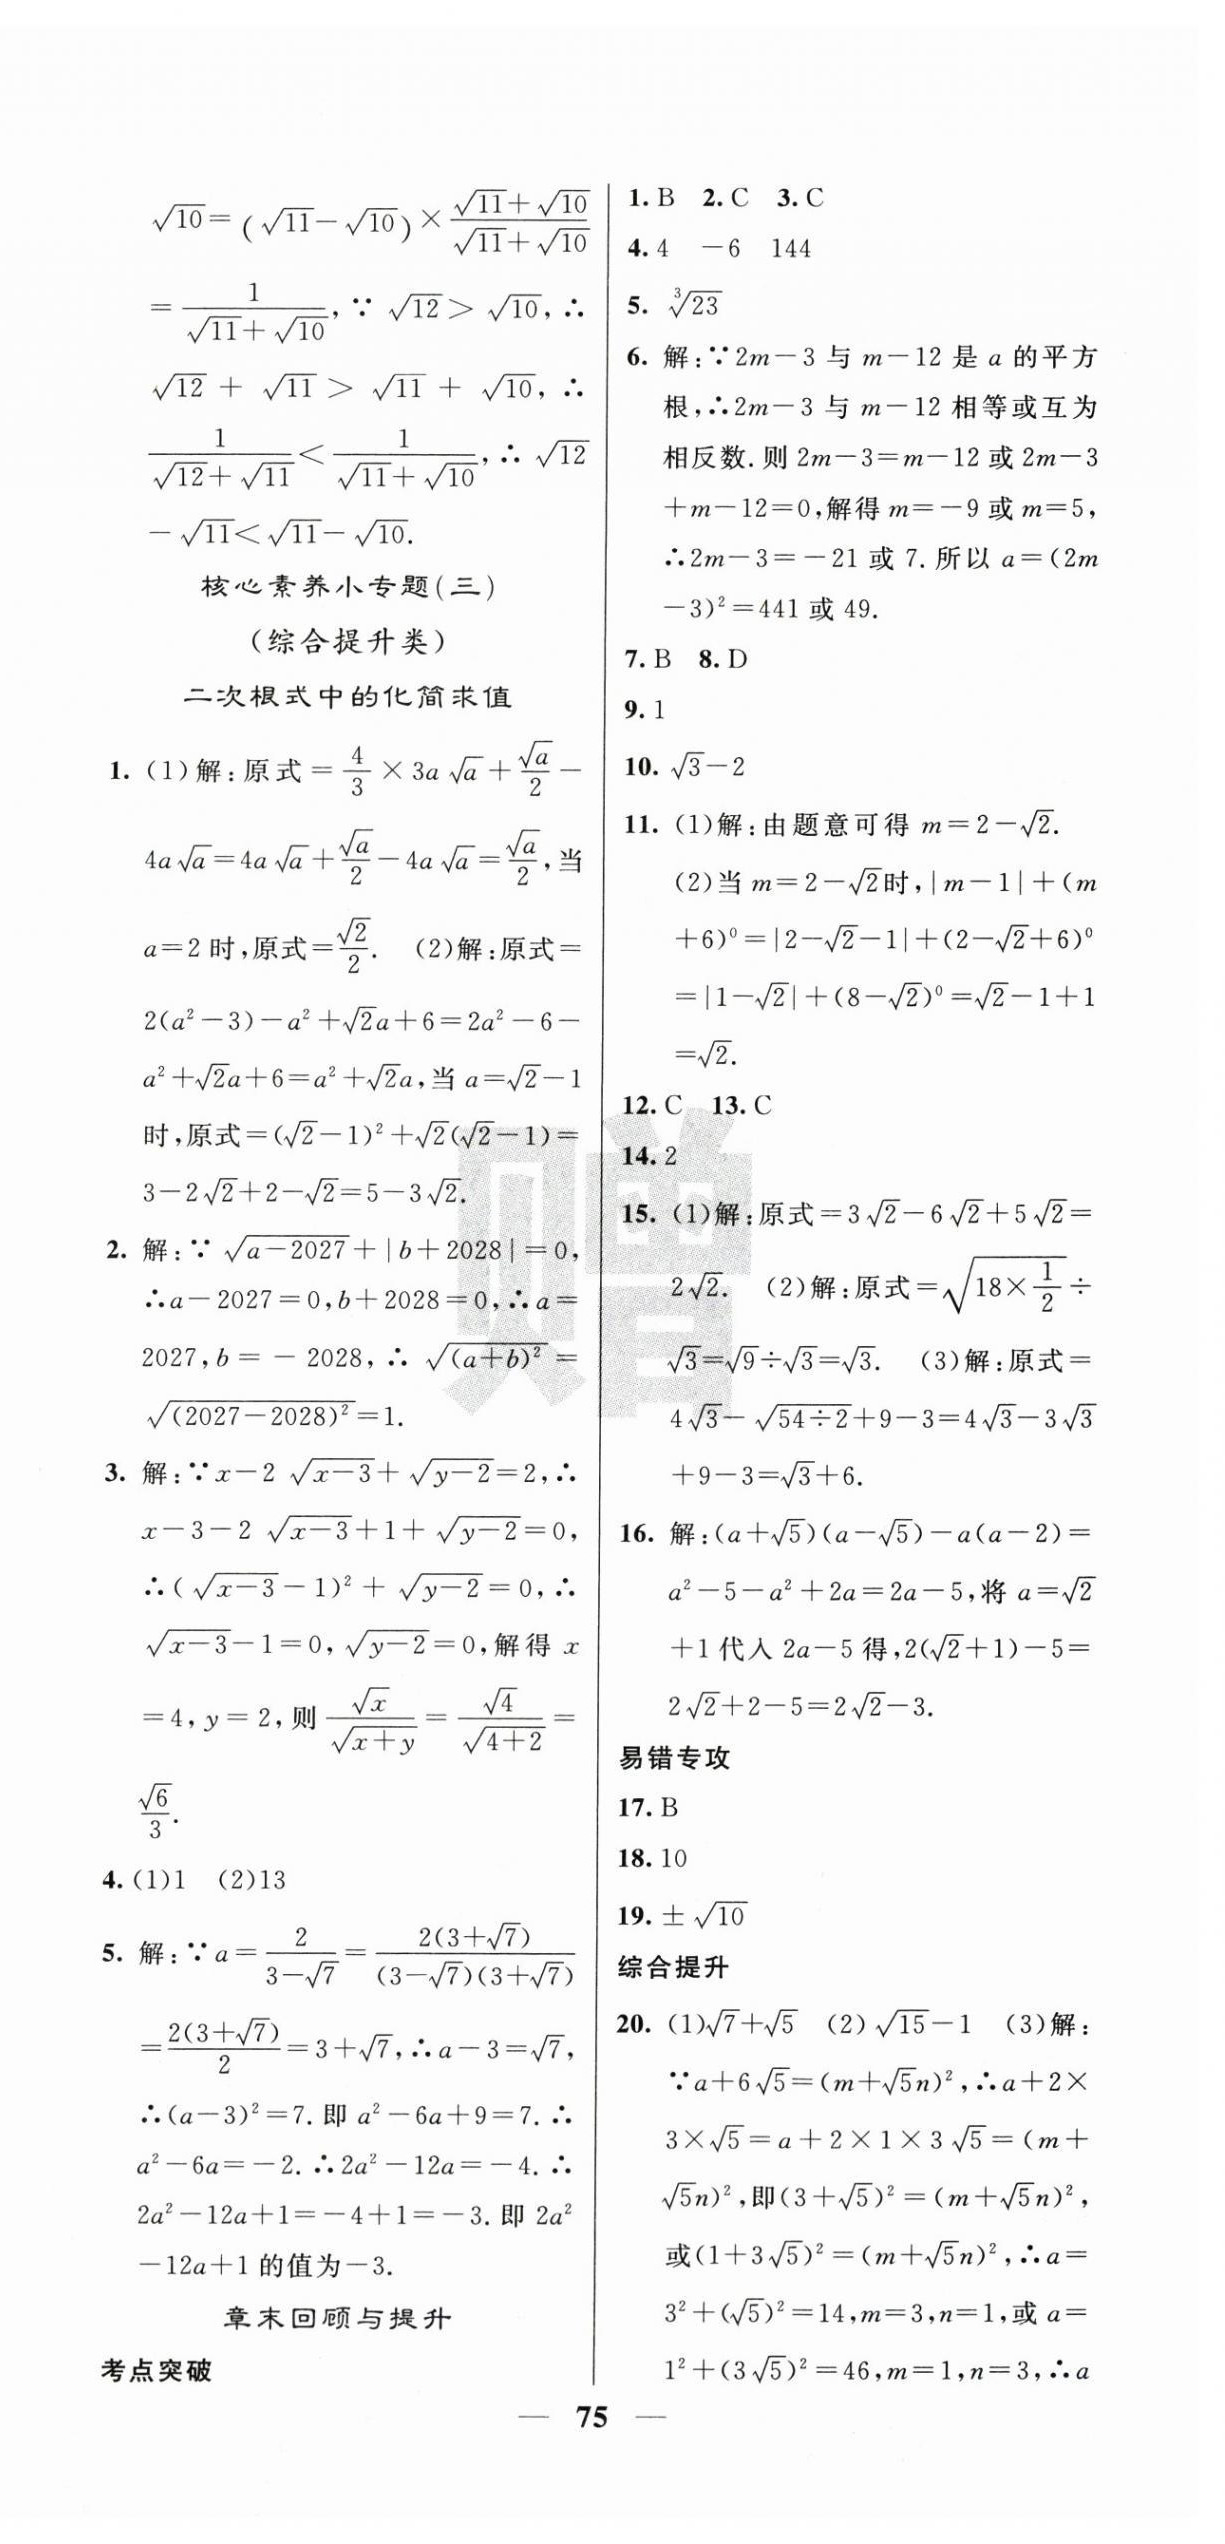 √10=(√11-√10)×(√11+√10)/(√11+√10)
=1/(√11+√10),∵√12>√10,∴
√12+√11>√11+√10,∴
1/(√12+√11)<1/(√11+√10),∴√12
-√11<√11-√10.
核心素养小专题(三)
(综合提升类)
二次根式中的化简求值
1. (1)解:原式=4/3×3a√a+√a/2-
4a√a=4a√a+√a/2-4a√a=√a/2,当
a=2时,原式=√2/2. (2)解:原式=
2(a²-3)-a²+√2a+6=2a²-6-
a²+√2a+6=a²+√2a,当a=√2-1
时,原式=(√2-1)²+√2(√2-1)=
3-2√2+2-√2=5-3√2.
2. 解:∵√(a-2027)+|b+2028|=0,
∴a-2027=0,b+2028=0,∴a=
2027,b=-2028,∴√((a+b)²)=
√((2027-2028)²)=1.
3. 解:∵x-2√(x-3)+√(y-2)=2,∴
x-3-2√(x-3)+1+√(y-2)=0,
∴(√(x-3)-1)²+√(y-2)=0,∴
√(x-3)-1=0,√(y-2)=0,解得x
=4,y=2,则√x/√(x+y)=√4/√(4+2)=
√6/3.
4. (1)1 (2)13
5. 解:∵a=2/(3-√7)=2(3+√7)/((3-√7)(3+√7))
=2(3+√7)/2=3+√7,∴a-3=√7,
∴(a-3)²=7.即a²-6a+9=7.∴
a²-6a=-2.∴2a²-12a=-4.∴
2a²-12a+1=-4+1=-3.即2a²
-12a+1的值为-3.
章末回顾与提升
考点突破
1. B 2. C 3. C
4. 4 -6 144
5. ∛23
6. 解:∵2m-3与m-12是a的平方
根,∴2m-3与m-12相等或互为
相反数.则2m-3=m-12或2m-3
+m-12=0,解得m=-9或m=5,
∴2m-3=-21或7.所以a=(2m
-3)²=441或49.
7. B 8. D
9. 1
10. √3-2
11. (1)解:由题意可得m=2-√2.
(2)当m=2-√2时,|m-1|+(m
+6)⁰=|2-√2-1|+(2-√2+6)⁰
=|1-√2|+(8-√2)⁰=√2-1+1
=√2.
12. C 13. C
14. 2
15. (1)解:原式=3√2-6√2+5√2=
2√2. (2)解:原式=√(18×1/2)÷
√3=√9÷√3=√3. (3)解:原式=
4√3-√(54÷2)+9-3=4√3-3√3
+9-3=√3+6.
16. 解:(a+√5)(a-√5)-a(a-2)=
a²-5-a²+2a=2a-5,将a=√2
+1代入2a-5得,2(√2+1)-5=
2√2+2-5=2√2-3.
易错专攻
17. B
18. 10
19. ±√10
综合提升
20. (1)√7+√5 (2)√15-1 (3)解:
∵a+6√5=(m+√5n)²,∴a+2×
3×√5=a+2×1×3√5=(m+
√5n)²,即(3+√5)²=(m+√5n)²,
或(1+3√5)²=(m+√5n)²,∴a=
3²+(√5)²=14,m=3,n=1,或a=
1²+(3√5)²=46,m=1,n=3,∴a
赠
— 75 —